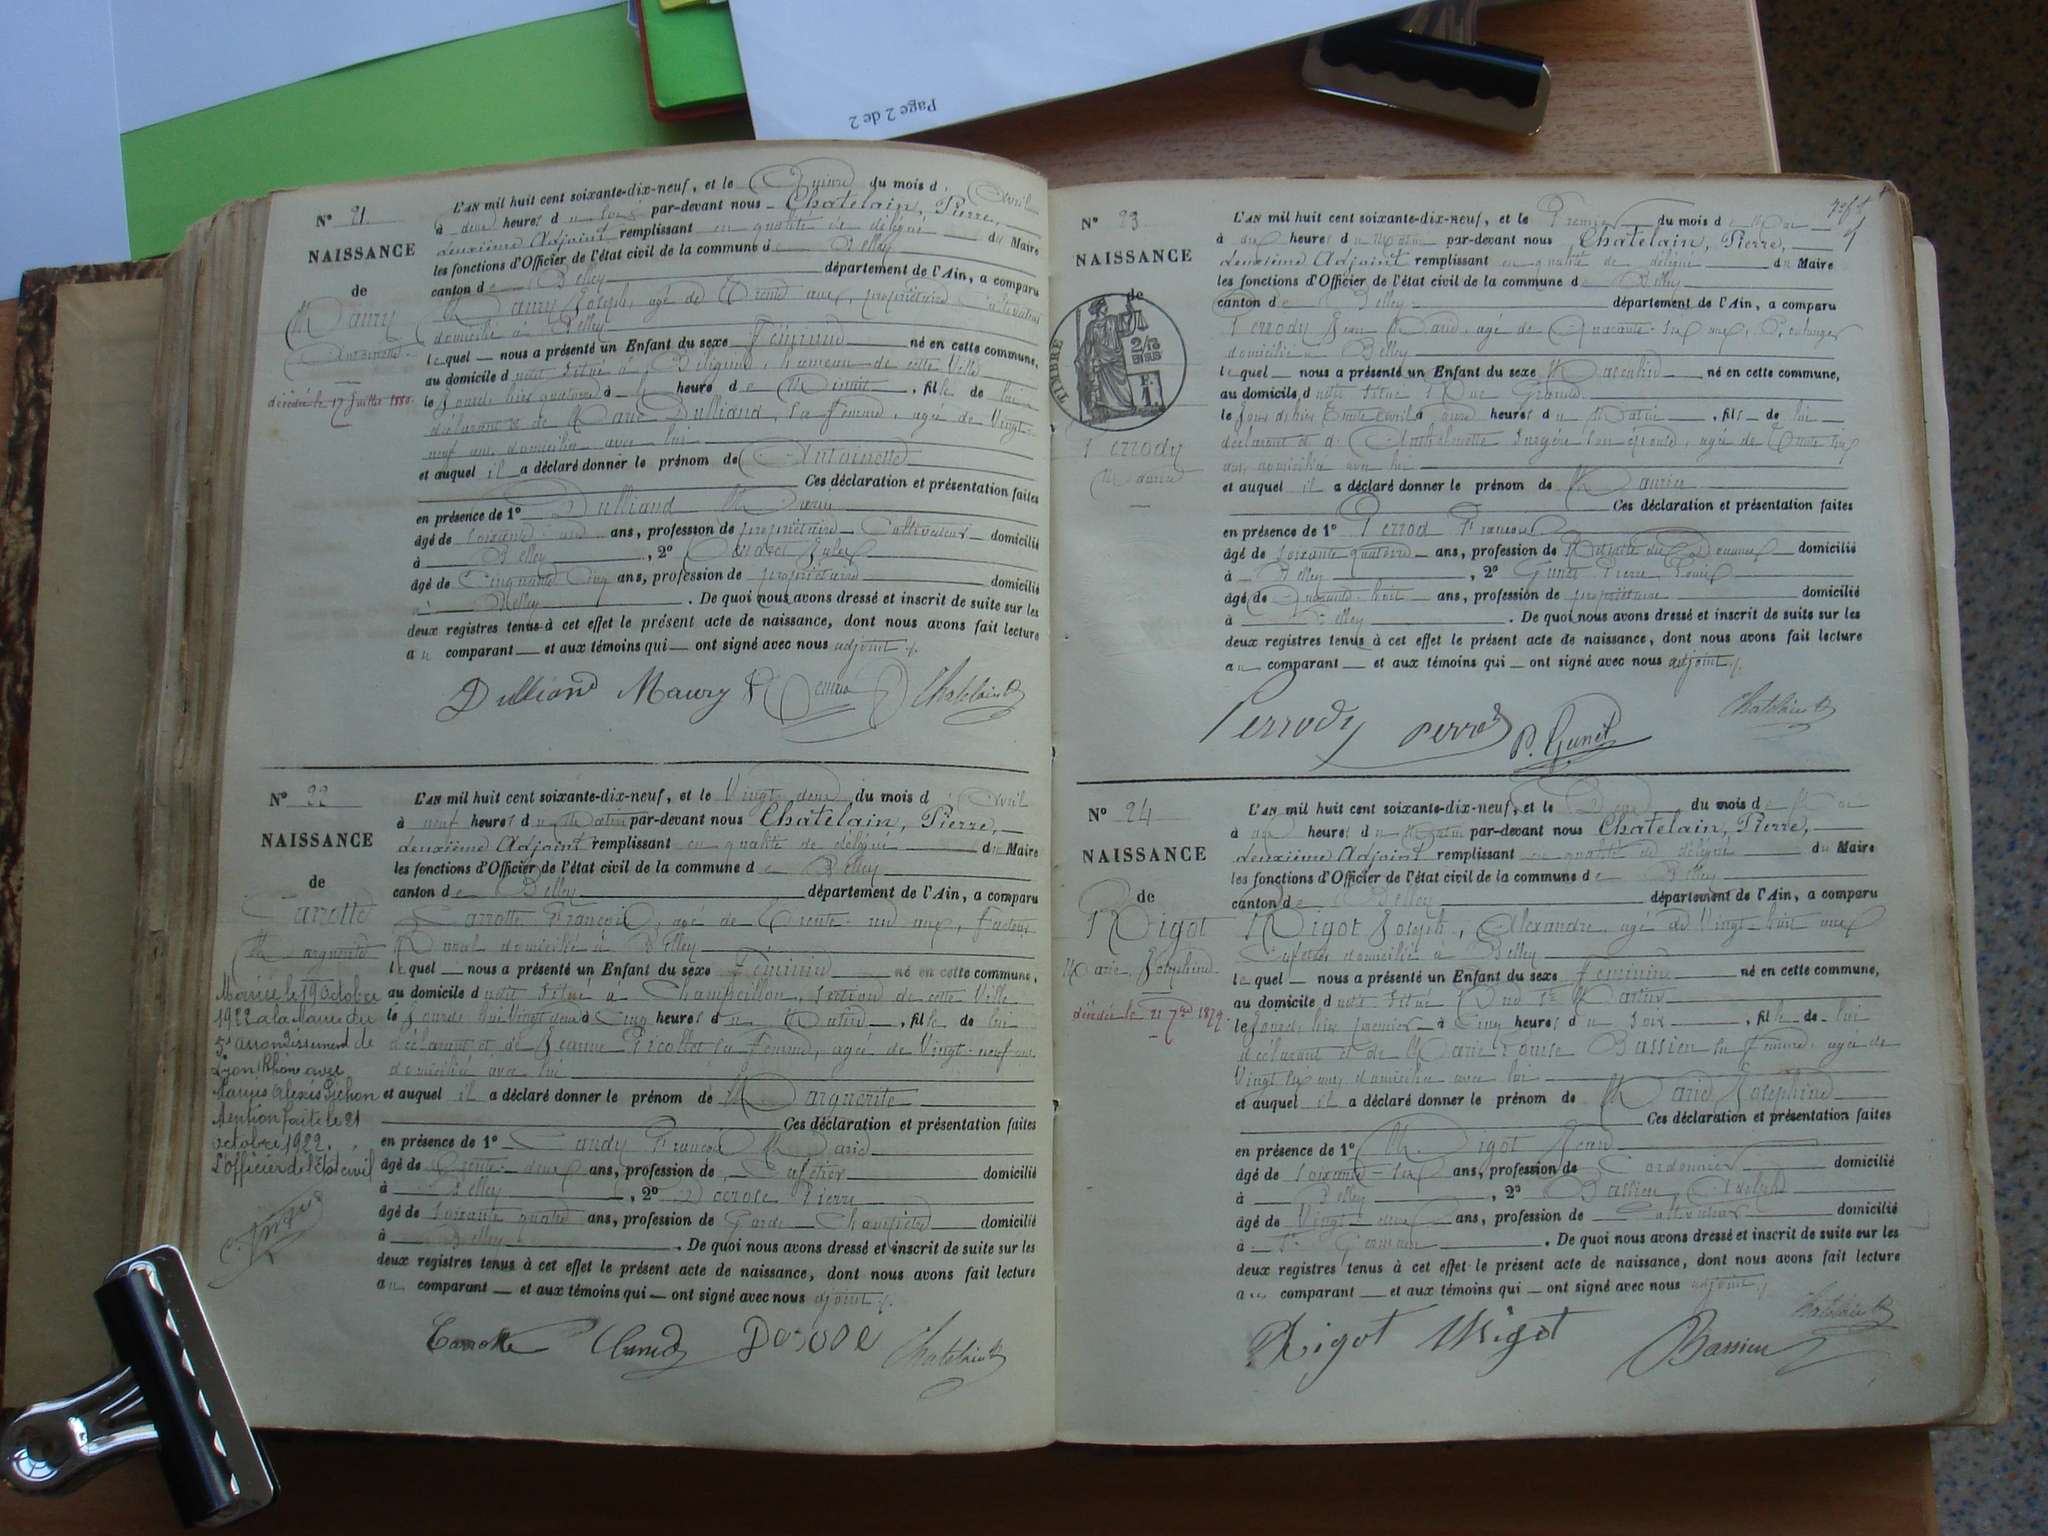 Page 2 de 2
N° 21
NAISSANCE
de
Maury
Antoinette
décédée le 17 Juillet 1880.
L'AN mil huit cent soixante-dix-neuf, et le Quinze du mois d'Avril
à deux heures du soir par-devant nous Chatelain, Pierre,
deuxième Adjoint remplissant en qualité de délégué du Maire
les fonctions d'Officier de l'état civil de la commune de Belley
canton de Belley département de l'Ain, a comparu
Maury Joseph, agé de Trente ans, propriétaire cultivateur
domicilié à Belley
lequel nous a présenté un Enfant du sexe Féminin né en cette commune,
au domicile d situé à hameau de cette Ville
le Jourd'hier quatorze à heure de Minuit, fille de lui
déclarant et de Marie Dulliand, sa femme, agée de Vingt-
neuf ans domiciliée avec lui
et auquel il a déclaré donner le prénom de Antoinette
Ces déclaration et présentation faites
en présence de 1° Dulliand
âgé de soixante ans, profession de propriétaire Cultivateur domicilié
à Belley, 2°
âgé de Cinquante Cinq ans, profession de propriétaire domicilié
à Belley. De quoi nous avons dressé et inscrit de suite sur les
deux registres tenus à cet effet le présent acte de naissance, dont nous avons fait lecture
au comparant et aux témoins qui ont signé avec nous adjoint.
Dulliand Maury Chatelain
N° 22
NAISSANCE
de
Carrotte
Marguerite
Mariée le 19 Octobre
1922 a la Mairie du
5e arrondissement de
Lyon (Rhône) avec
Marius Alexis Pichon
Mention faite le 21
octobre 1922.
L'officier de l'Etat civil
L'AN mil huit cent soixante-dix-neuf, et le Vingt deux du mois d'Avril
à neuf heures du Matin par-devant nous Chatelain, Pierre,
deuxième Adjoint remplissant en qualité de délégué du Maire
les fonctions d'Officier de l'état civil de la commune de Belley
canton de Belley département de l'Ain, a comparu
Carrotte François, agé de Trente-un ans, facteur
Rural domicilié à Belley
lequel nous a présenté un Enfant du sexe Féminin né en cette commune,
au domicile d situé à Champeillon, section de cette Ville
le Jourd'hui Vingt deux à Cinq heures du Matin, fille de lui
déclarant et de Jeanne sa femme, agée de Vingt-neuf ans
domiciliée avec lui
et auquel il a déclaré donner le prénom de Marguerite
Ces déclaration et présentation faites
en présence de 1° François Marie
âgé de Trente-deux ans, profession de Cafetier domicilié
à Belley, 2° Derose Pierre
âgé de soixante quatre ans, profession de Garde Champêtre domicilié
à Belley. De quoi nous avons dressé et inscrit de suite sur les
deux registres tenus à cet effet le présent acte de naissance, dont nous avons fait lecture
au comparant et aux témoins qui ont signé avec nous adjoint.
Carrotte Chatelain
N° 23
NAISSANCE
de
TIMBRE
2/10
EN SUS
F. 1.
Perrody
L'AN mil huit cent soixante-dix-neuf, et le Premier du mois de Mai
à dix heures du Matin par-devant nous Chatelain, Pierre,
deuxième Adjoint remplissant en qualité de délégué du Maire
les fonctions d'Officier de l'état civil de la commune de Belley
canton de Belley département de l'Ain, a comparu
Perrody Jean Marie, agé de Quarante-six ans, Boulanger
domicilié à Belley
lequel nous a présenté un Enfant du sexe Masculin né en cette commune,
au domicile d situé Rue Grande
le Jour d'hier Trente Avril à heures du Matin, fils de lui
déclarant et d'Anthelmette son épouse, agée de Trente six
ans domiciliée avec lui
et auquel il a déclaré donner le prénom de
Ces déclaration et présentation faites
en présence de 1° Perrod François
âgé de soixante quatorze ans, profession de Retraité des Douanes domicilié
à Belley, 2° Gunet Pierre Louis
âgé de Quarante-huit ans, profession de propriétaire domicilié
à Belley. De quoi nous avons dressé et inscrit de suite sur les
deux registres tenus à cet effet le présent acte de naissance, dont nous avons fait lecture
au comparant et aux témoins qui ont signé avec nous adjoint.
Perrody Perrod P. Gunet Chatelain
N° 24
NAISSANCE
de
Rigot
Marie Joséphine
décédée le 21 7bre 1879.
L'AN mil huit cent soixante-dix-neuf, et le Deux du mois de Mai
à heures du Matin par-devant nous Chatelain, Pierre,
deuxième Adjoint remplissant en qualité de délégué du Maire
les fonctions d'Officier de l'état civil de la commune de Belley
canton de Belley département de l'Ain, a comparu
Rigot Joseph, Alexandre, agé de Vingt-huit ans
Cafetier domicilié à Belley
lequel nous a présenté un Enfant du sexe Féminin né en cette commune,
au domicile d situé Rue St Martin
le Jourd'hier premier à Cinq heures du Soir, fille de lui
déclarant et de Marie Louise Bassieu sa femme, agée de
Vingt six ans domiciliée avec lui
et auquel il a déclaré donner le prénom de Marie Joséphine
Ces déclaration et présentation faites
en présence de 1° Rigot
âgé de soixante-six ans, profession de Cordonnier domicilié
à Belley, 2° Bassieu,
âgé de Vingt-deux ans, profession de Cultivateur domicilié
à St Germain. De quoi nous avons dressé et inscrit de suite sur les
deux registres tenus à cet effet le présent acte de naissance, dont nous avons fait lecture
au comparant et aux témoins qui ont signé avec nous adjoint.
Rigot Rigot Bassieu Chatelain